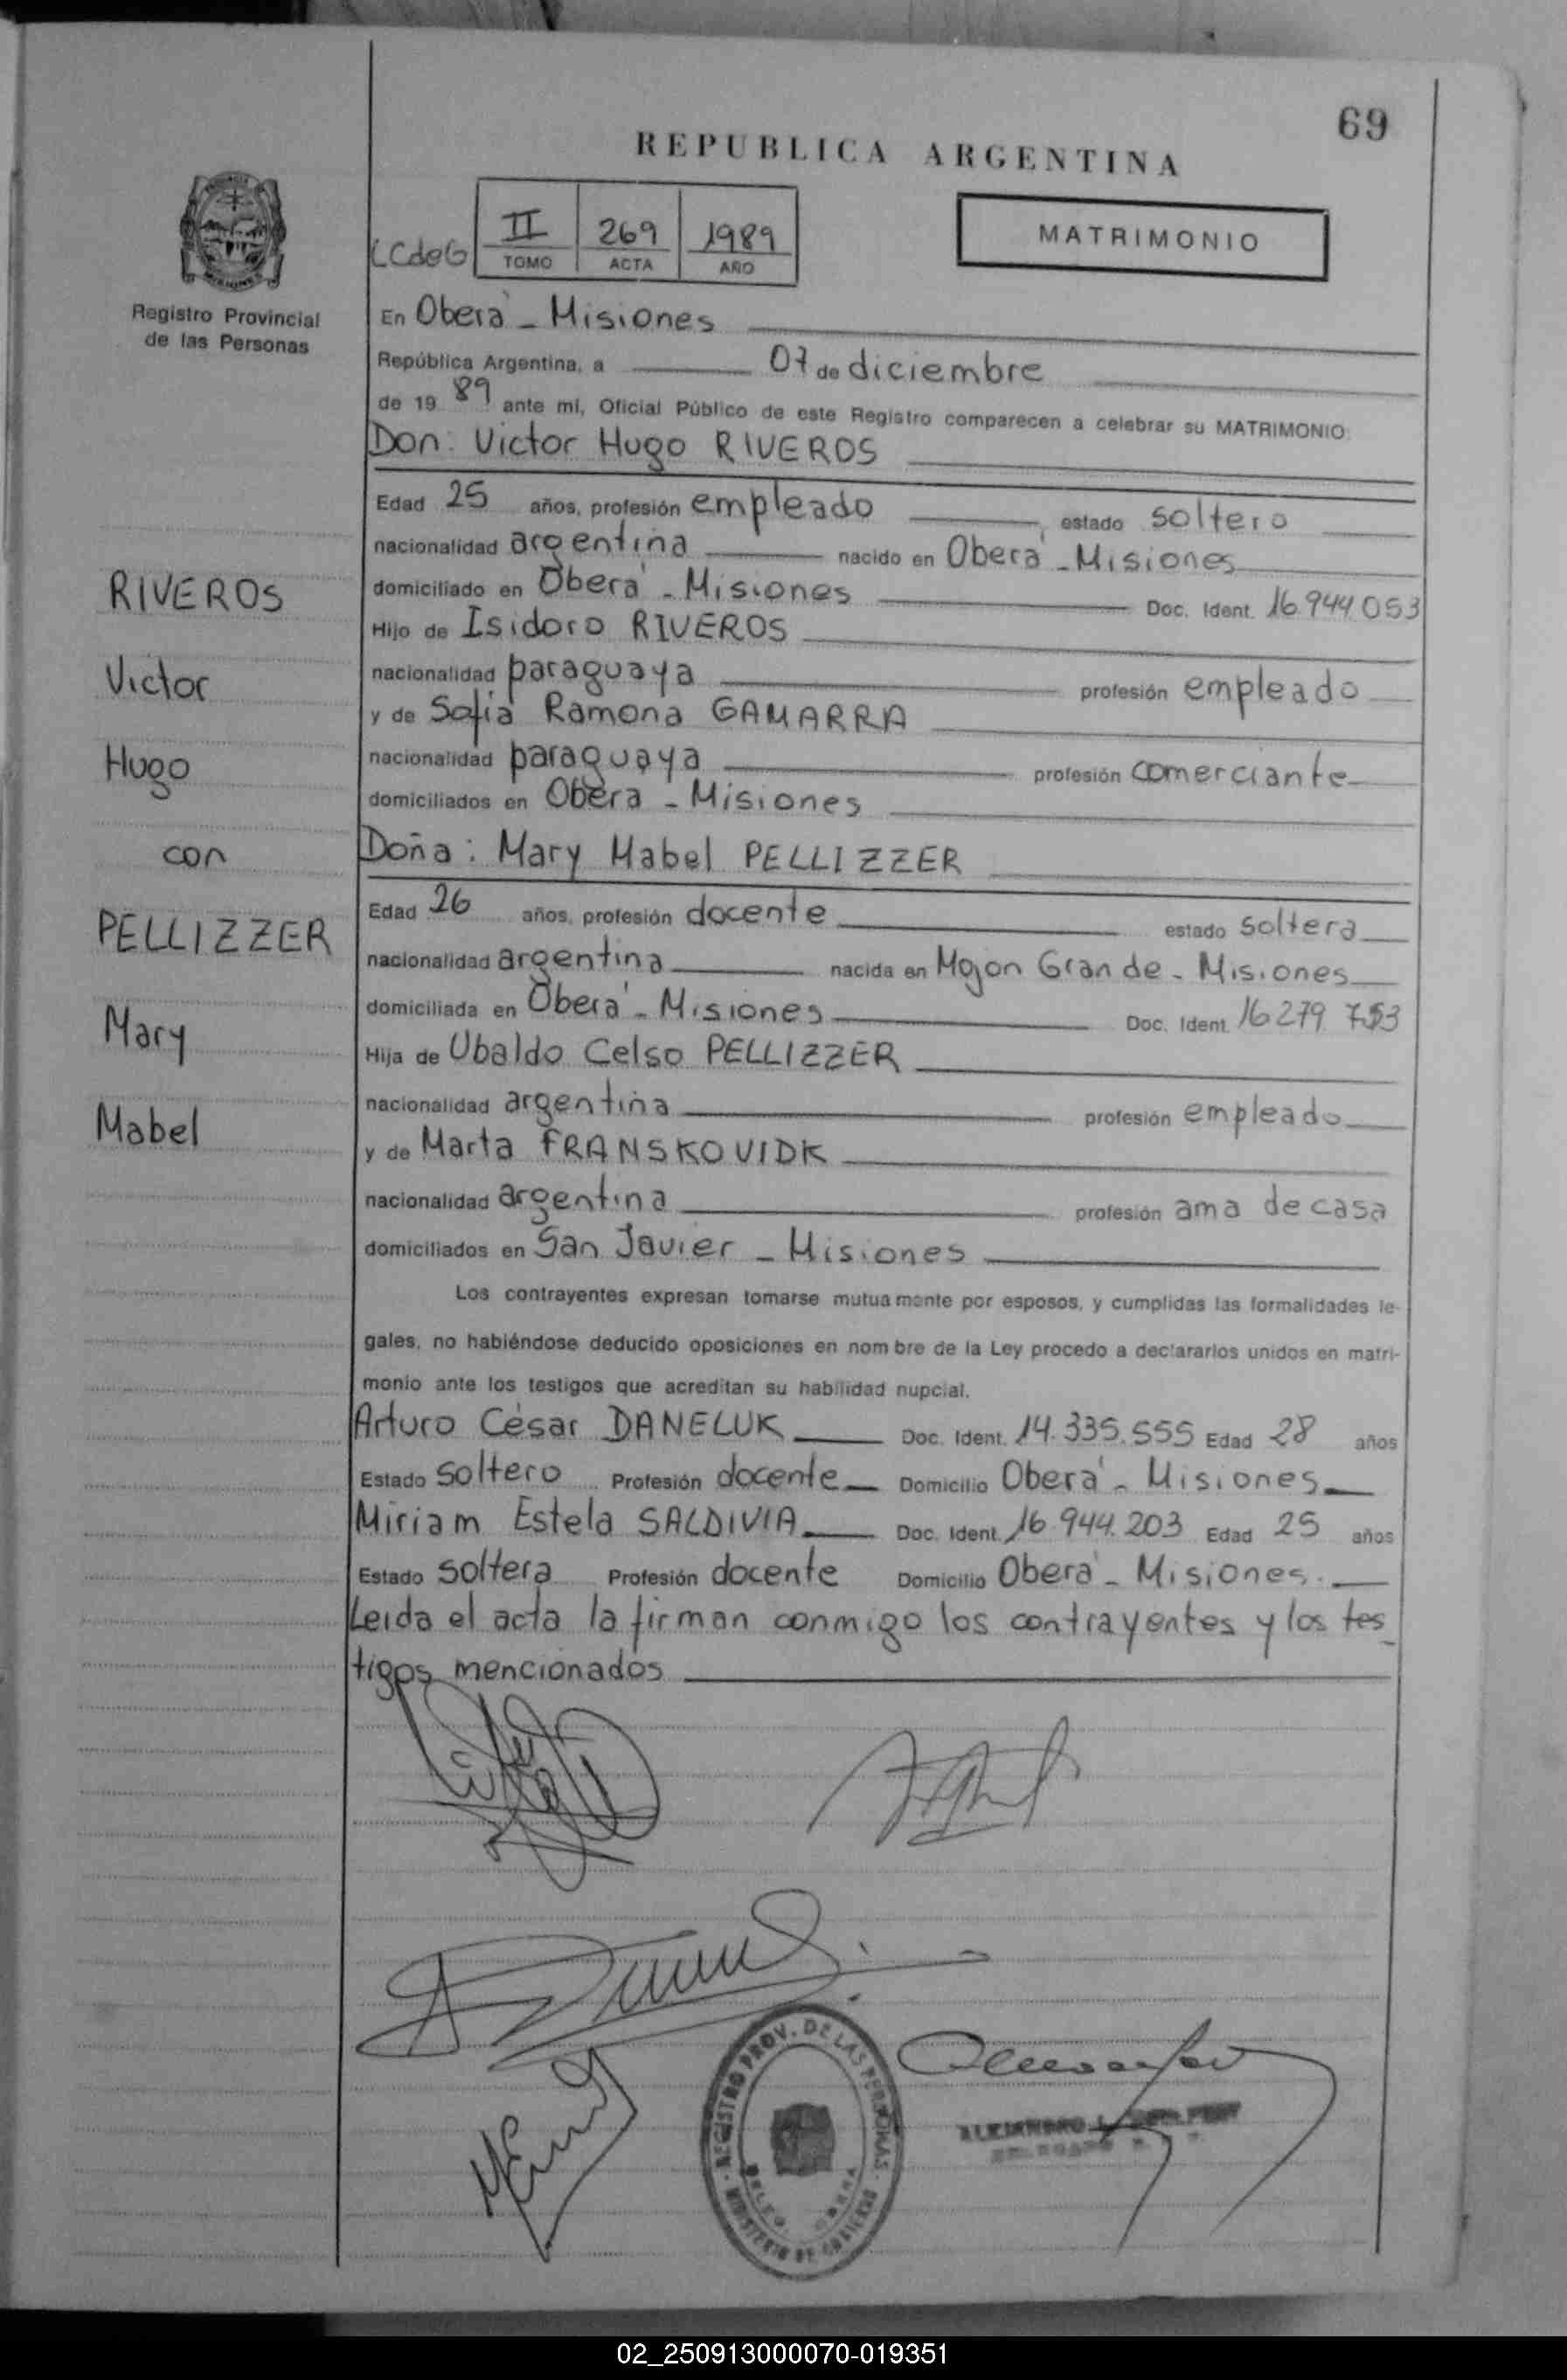 69
REPUBLICA ARGENTINA
LCdeG
II 269 1989
TOMO ACTA AÑO
MATRIMONIO
Registro Provincial
de las Personas
En Oberá - Misiones
República Argentina, a 07 de diciembre
de 19 89 ante mi, Oficial Público de este Registro comparecen a celebrar su MATRIMONIO:
Don: Victor Hugo RIVEROS
Edad 25 años, profesión empleado, estado soltero
nacionalidad argentina nacido en Oberá - Misiones
domiciliado en Oberá - Misiones Doc. Ident. 16.944.053
Hijo de Isidoro RIVEROS
nacionalidad paraguaya profesión empleado
y de Sofia Ramona GAMARRA
nacionalidad paraguaya profesión comerciante
domiciliados en Oberá - Misiones
Doña: Mary Mabel PELLIZZER
Edad 26 años, profesión docente estado soltera
nacionalidad argentina nacida en Mojon Grande - Misiones
domiciliada en Oberá - Misiones Doc. Ident. 16279
Hija de Ubaldo Celso PELLIZZER
nacionalidad argentina profesión empleado
y de Marta FRANSKOVIDK
nacionalidad argentina profesión ama de casa
domiciliados en San Javier - Misiones
RIVEROS
Victor
Hugo
con
PELLIZZER
Mary
Mabel
Los contrayentes expresan tomarse mutuamente por esposos, y cumplidas las formalidades le-
gales, no habiéndose deducido oposiciones en nombre de la Ley procedo a declararlos unidos en matri-
monio ante los testigos que acreditan su habilidad nupcial.
Arturo César DANELUK Doc. Ident. 14.335.555 Edad 28 años
Estado soltero Profesión docente Domicilio Oberá - Misiones
Miriam Estela SALDIVIA Doc. Ident. 16.944.203 Edad 25 años
Estado soltera Profesión docente Domicilio Oberá - Misiones.
Leida el acta la firman conmigo los contrayentes y los tes-
tigos mencionados
REGISTRO PROV. DE LAS PERSONAS
MINISTERIO DE GOBIERNO
ALEJANDRO
02_250913000070-019351